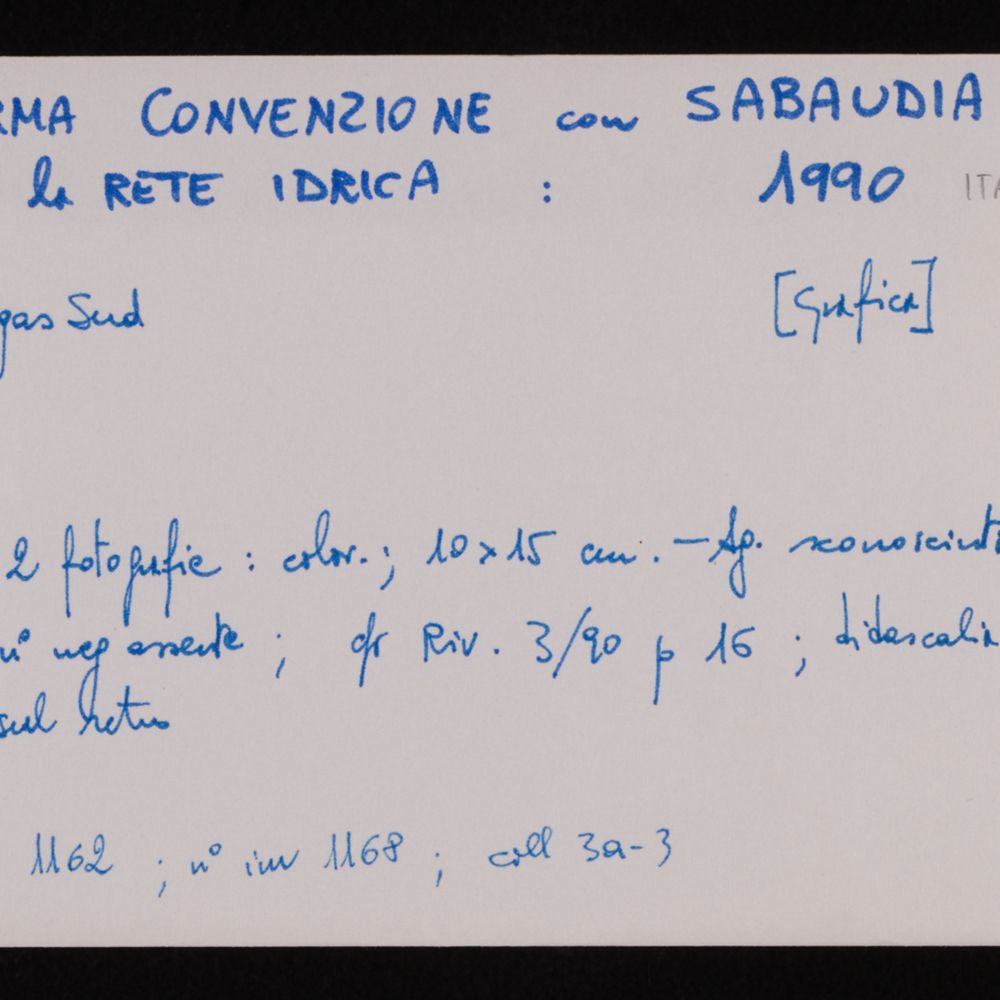 RMA CONVENZIONE con SABAUDIA
la RETE IDRICA : 1990 ITA
gas Sud [Grafica]
2 fotografie : color. ; 10 x 15 cm. - Ag. sconosciuta
n° neg assente ; cfr Riv. 3/90 p 16 ; didascalia
sul retro
1162 ; n° inv 1168 ; coll 3a-3